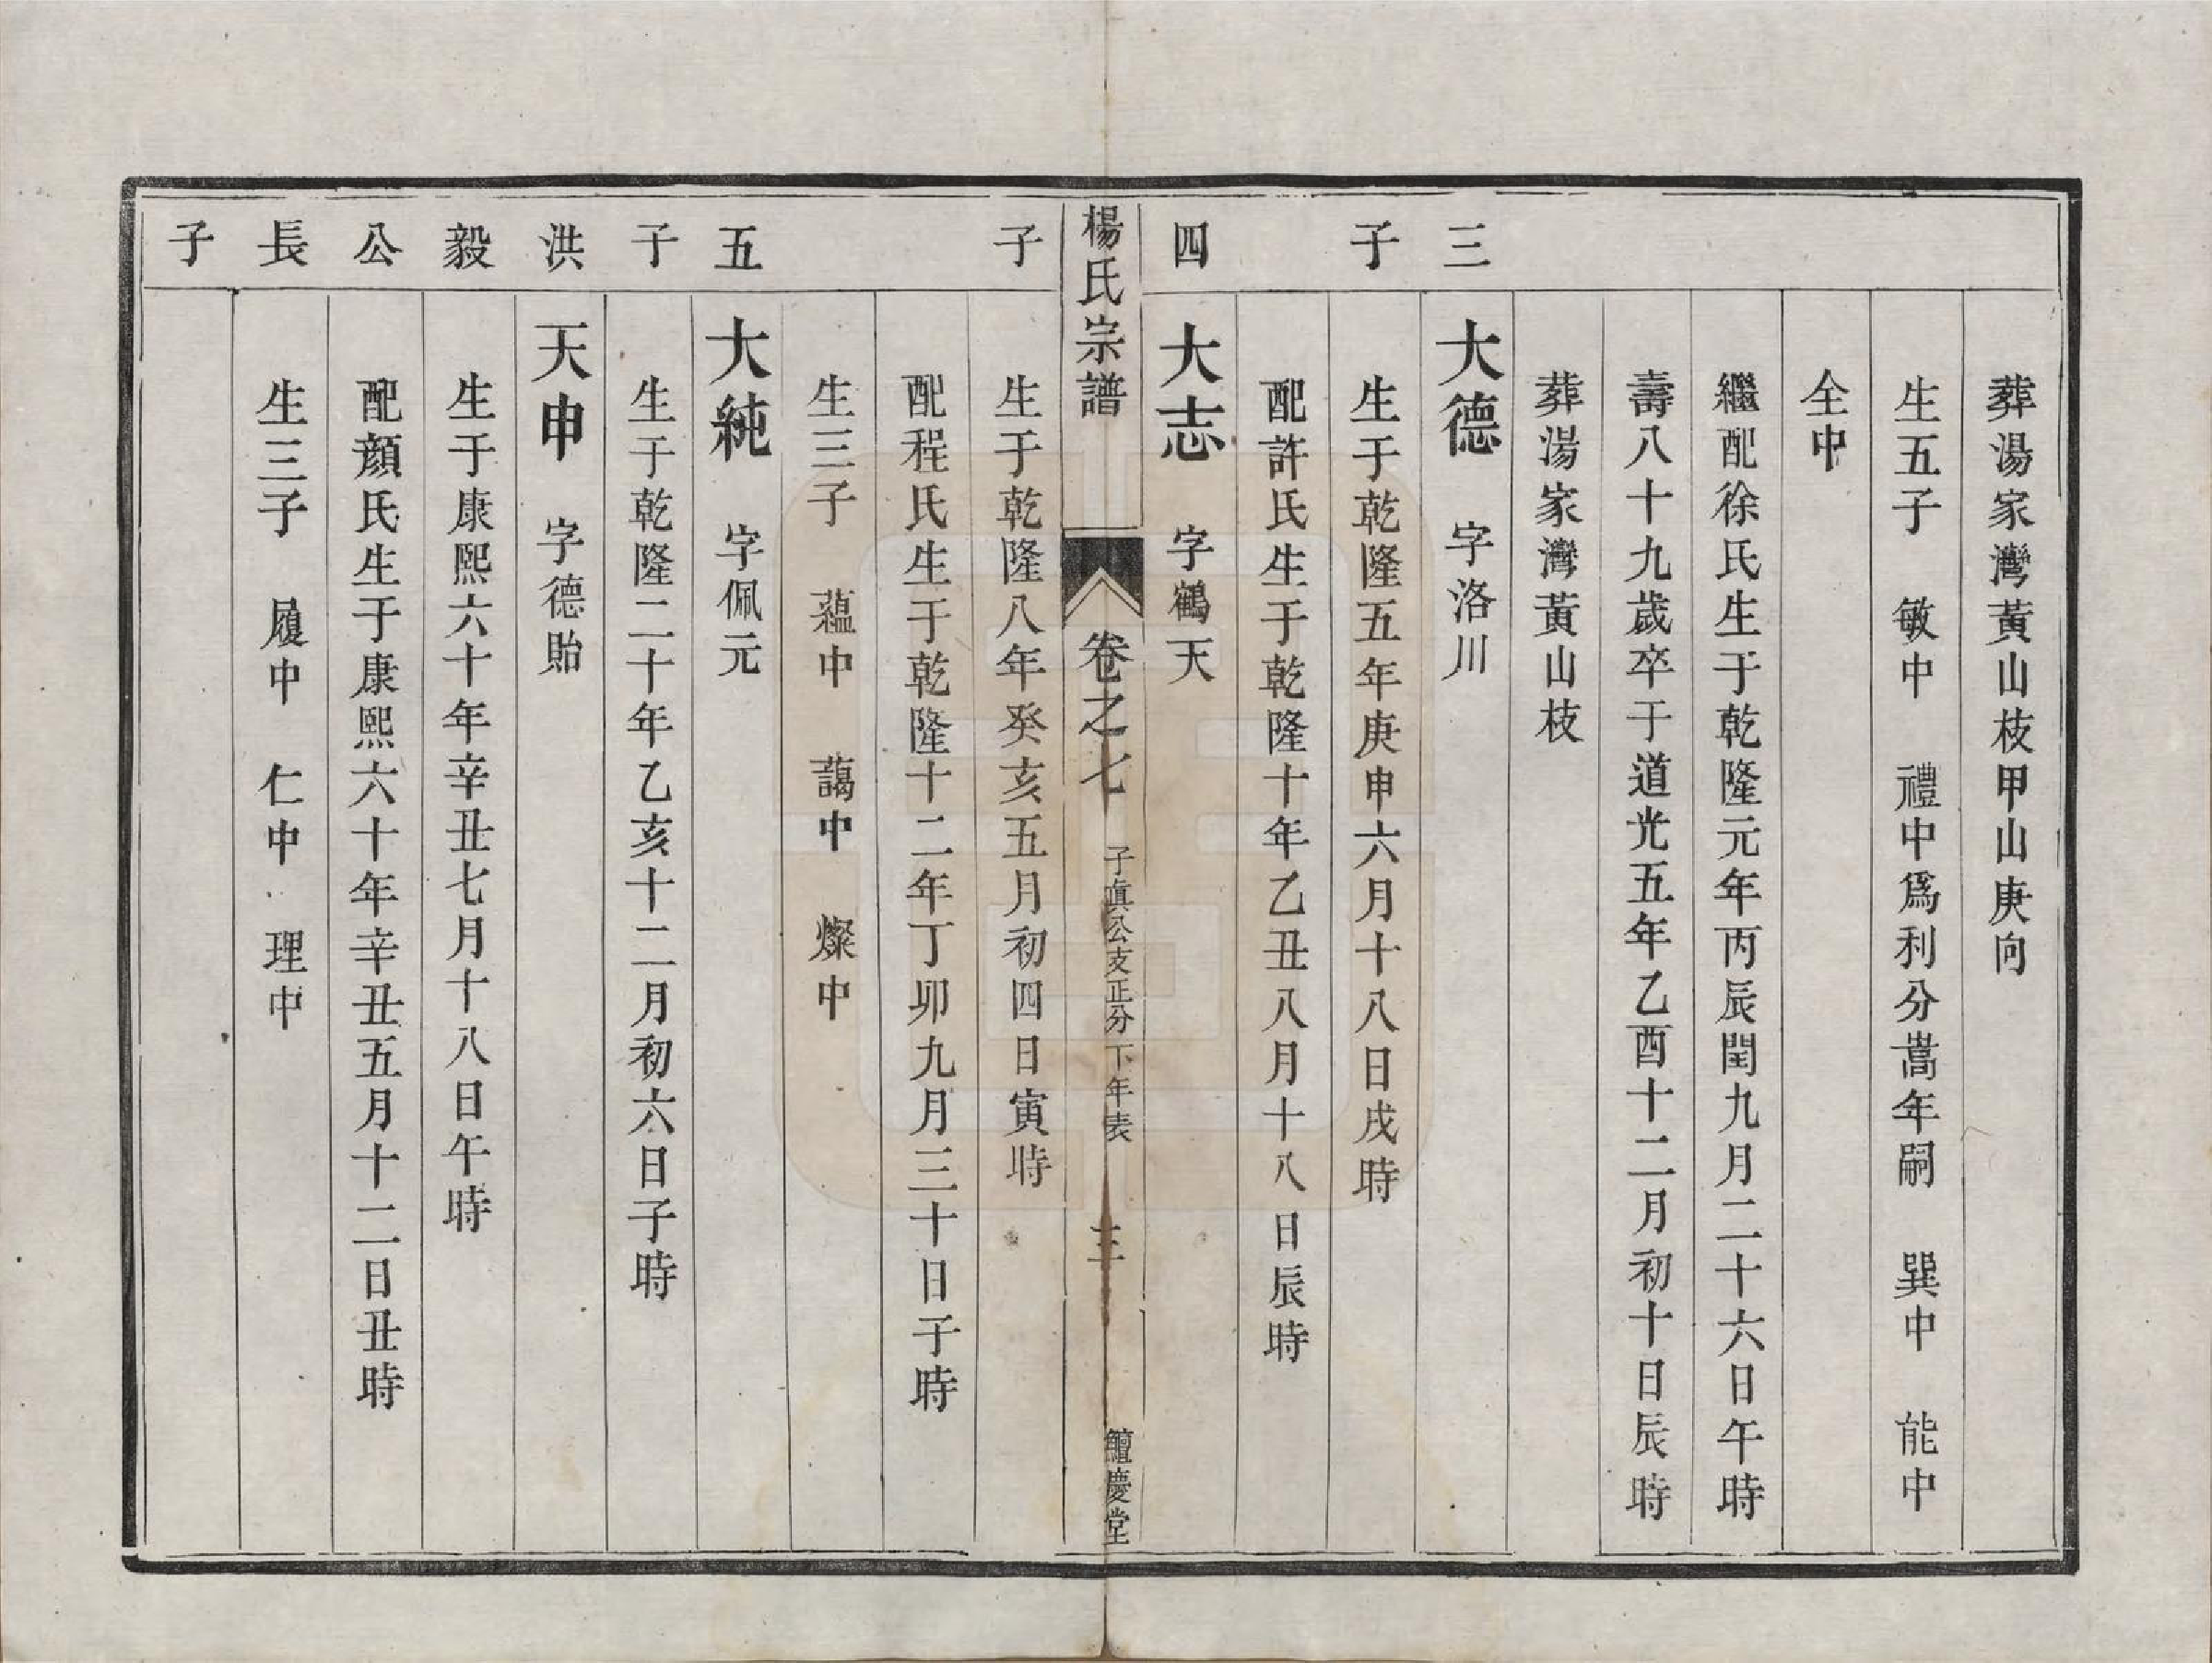 葬湯家灣黃山枝甲山庚向
生五子 敏中 禮中爲利分嵩年嗣 巽中 能中
全中
繼配徐氏生于乾隆元年丙辰閏九月二十六日午時
壽八十九歲卒于道光五年乙酉十二月初十日辰時
葬湯家灣黃山枝
三
大德 字洛川
子
生于乾隆五年庚申六月十八日戌時
配許氏生于乾隆十年乙丑八月十八日辰時
四
大志 字鶴天
楊氏宗譜 卷之七 子眞公支正分下年表 三 鱣慶堂
子
生于乾隆八年癸亥五月初四日寅時
配程氏生于乾隆十二年丁卯九月三十日子時
生三子 蘊中 藹中 燦中
五
大純 字佩元
子
生于乾隆二十年乙亥十二月初六日子時
洪
天申 字德貽
毅
生于康熙六十年辛丑七月十八日午時
公
配顏氏生于康熙六十年辛丑五月十二日丑時
長
生三子 履中 仁中 理中
子